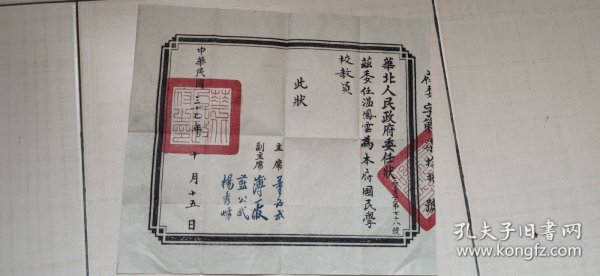 華北人民政府委任狀
茲委任溫鳳雲為本府國民學
校教員
此狀
主席 董必武
副主席 薄一波
藍公武
楊秀峰
中華民國三十七年十月十五日
孔夫子旧书网
www.kongfz.com